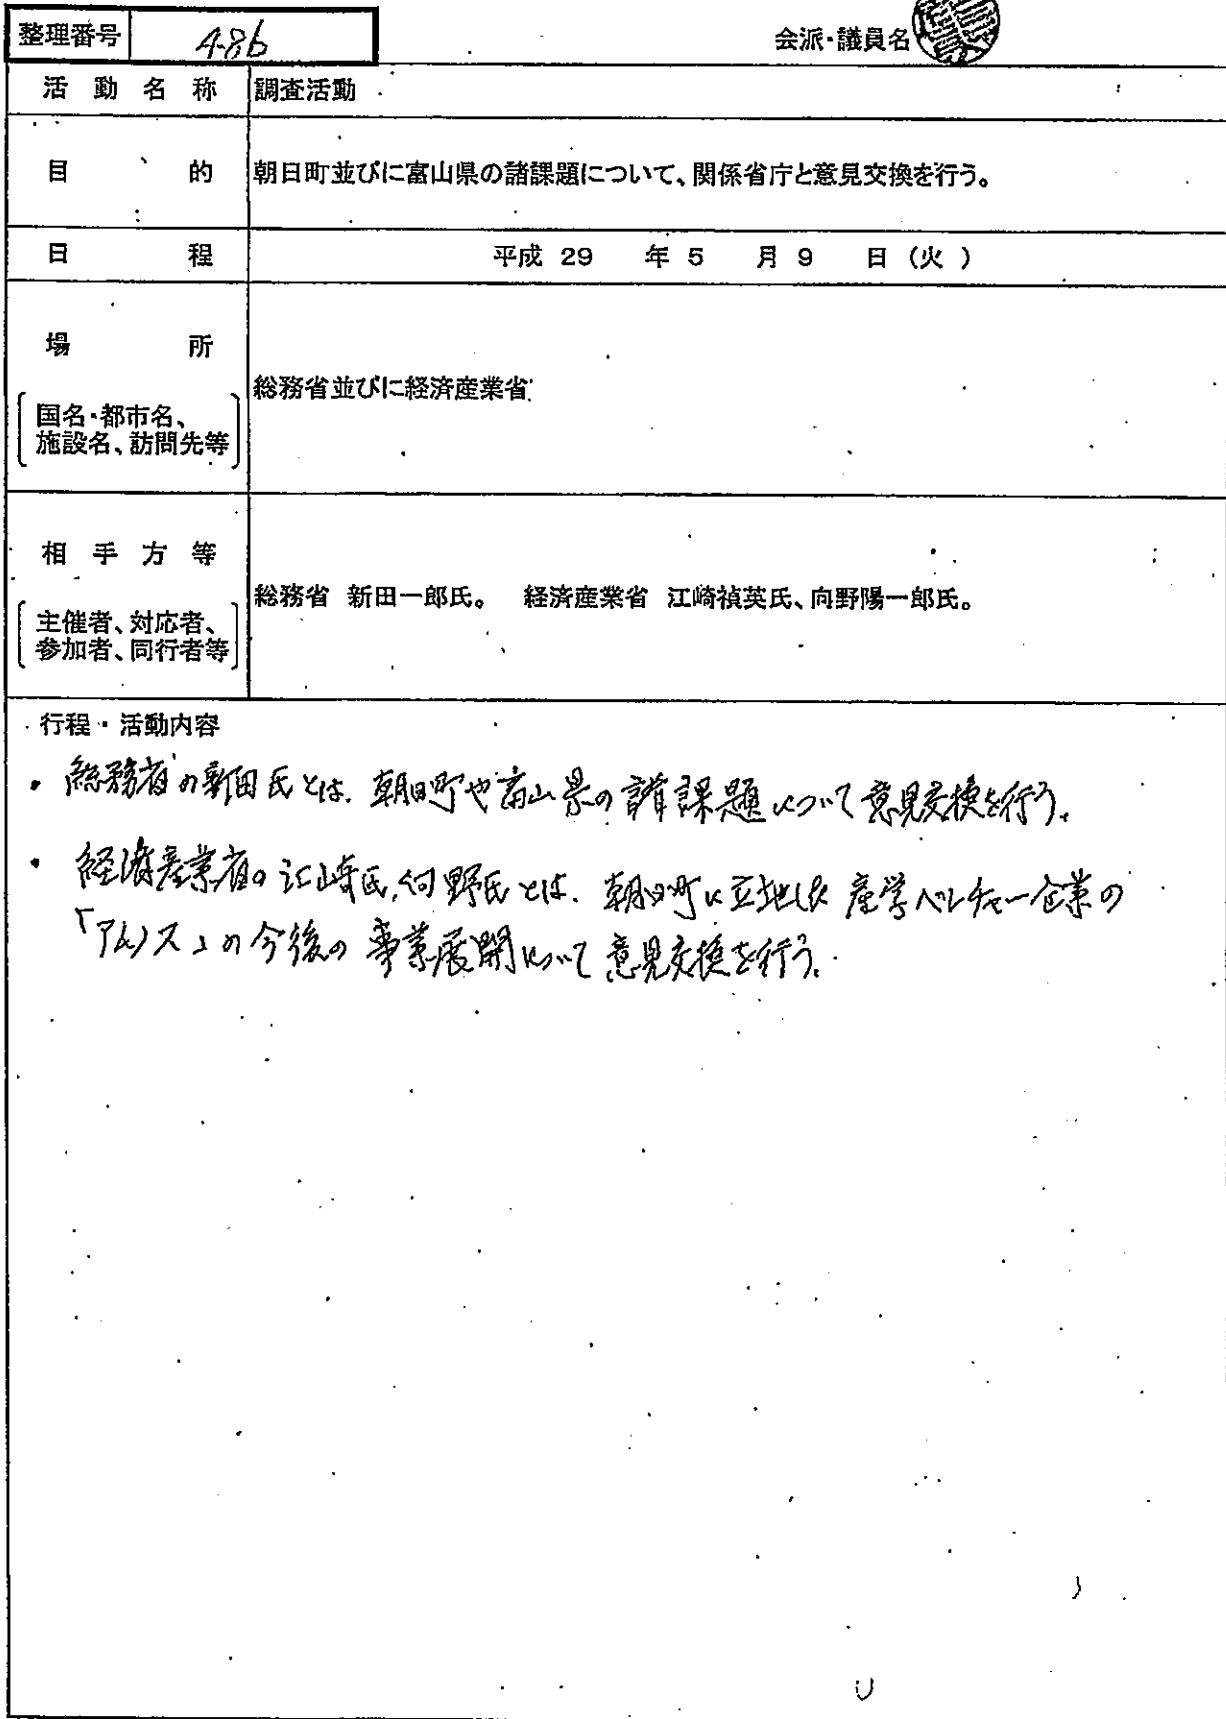 整理番号 4-86 会派・議員名
活動名称 調査活動
目的 朝日町並びに富山県の諸課題について、関係省庁と意見交換を行う。
日程 平成 29 年 5 月 9 日(火)
場所
総務省並びに経済産業省
国名・都市名、
施設名、訪問先等
相手方等
総務省 新田一郎氏。 経済産業省 江崎禎英氏、向野陽一郎氏。
主催者、対応者、
参加者、同行者等
行程・活動内容
・総務省の新田氏とは、朝日町や富山県の諸課題について意見交換を行う。
・経済産業省の江崎氏、向野氏とは、朝日町に立地した産学ベンチャー企業の
「アムノス」の今後の事業展開について意見交換を行う。